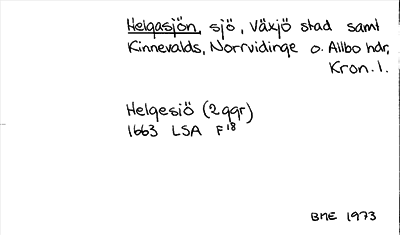 Helgasjön, sjö, Växjö stad samt
Kinnevalds, Norrvidinge o. Allbo hdr,
Kron. l.
Helgesiö (2 ggr)
1663 LSA F18
BME 1973